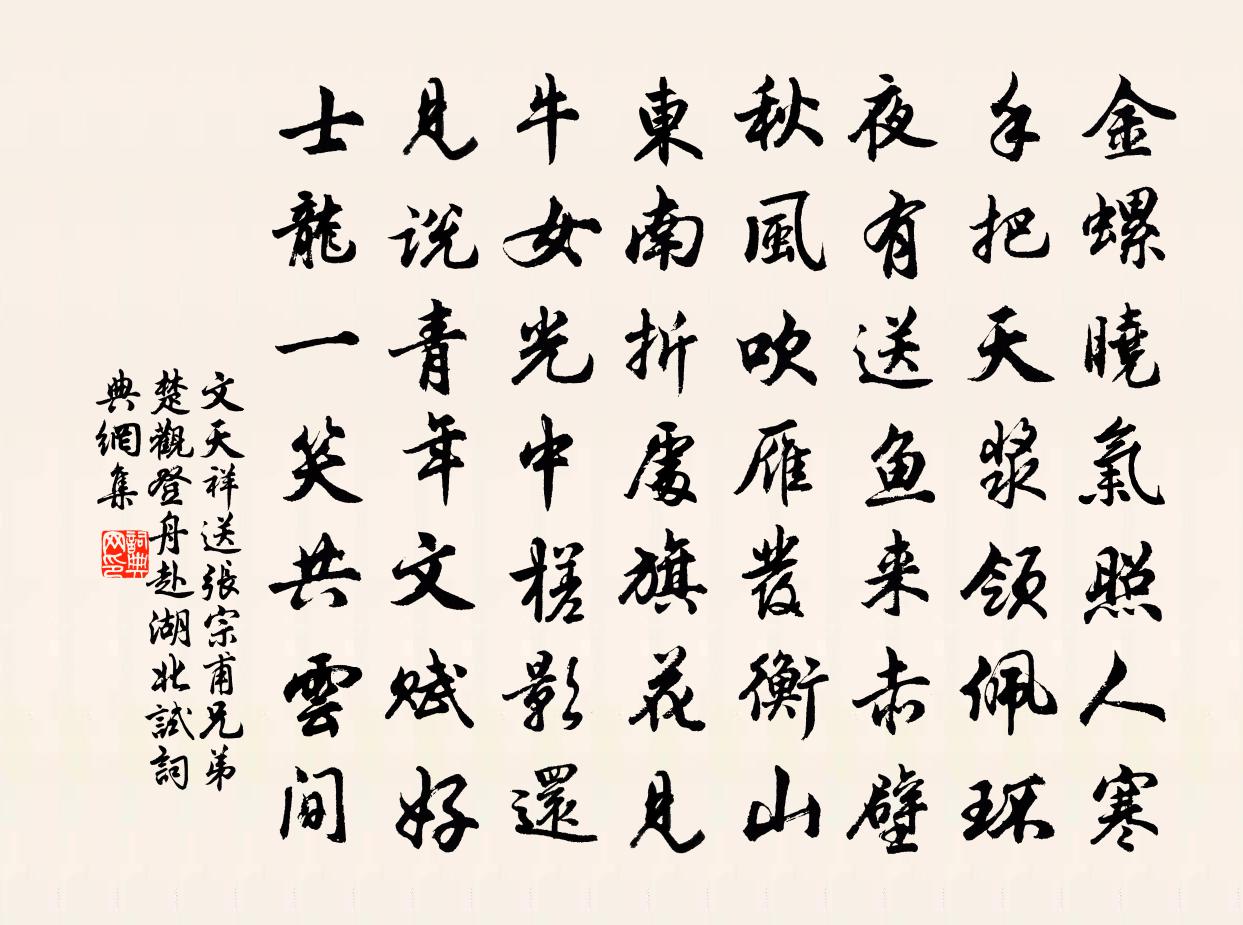 金螺曉氣照人寒
手把天漿領佩環
夜有送鱼来赤壁
秋風吹雁發衡山
東南折處旗花見
牛女光中槎影還
見説青年文賦好
士龍一笑共雲间
文天祥送張宗甫兄弟
楚觀登舟赴湖北試詞
典網集
詞典
网印